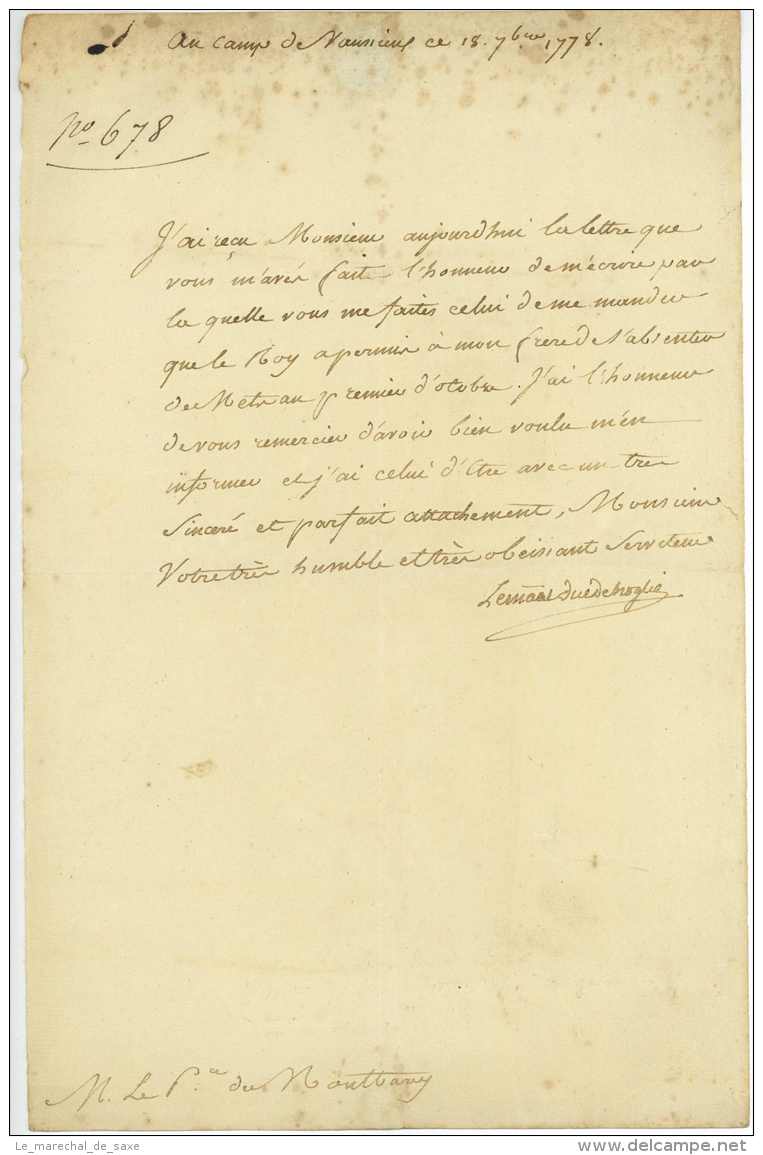 Au Camp de Vaussieux ce 18. 7bre 1778.
No 678
J'ai reçu Monsieur aujourdhui la lettre que
vous m'avés fait l'honneur de m'écrire par
la quelle vous me faites celui de me mander
que le Roy a permis à mon frere de s'absenter
de Metz au premier d'otobre. J'ai l'honneur
de vous remercier d'avoir bien voulu m'en
informer et j'ai celui d'Etre avec un tres
Sinceré et parfait attachement, Monsieur
Votre très humble et très obeissant Serviteur
Le mâal duc de broglie
M. Le P.ce de Montbarey
Le_marechal_de_saxe
delcampe.net